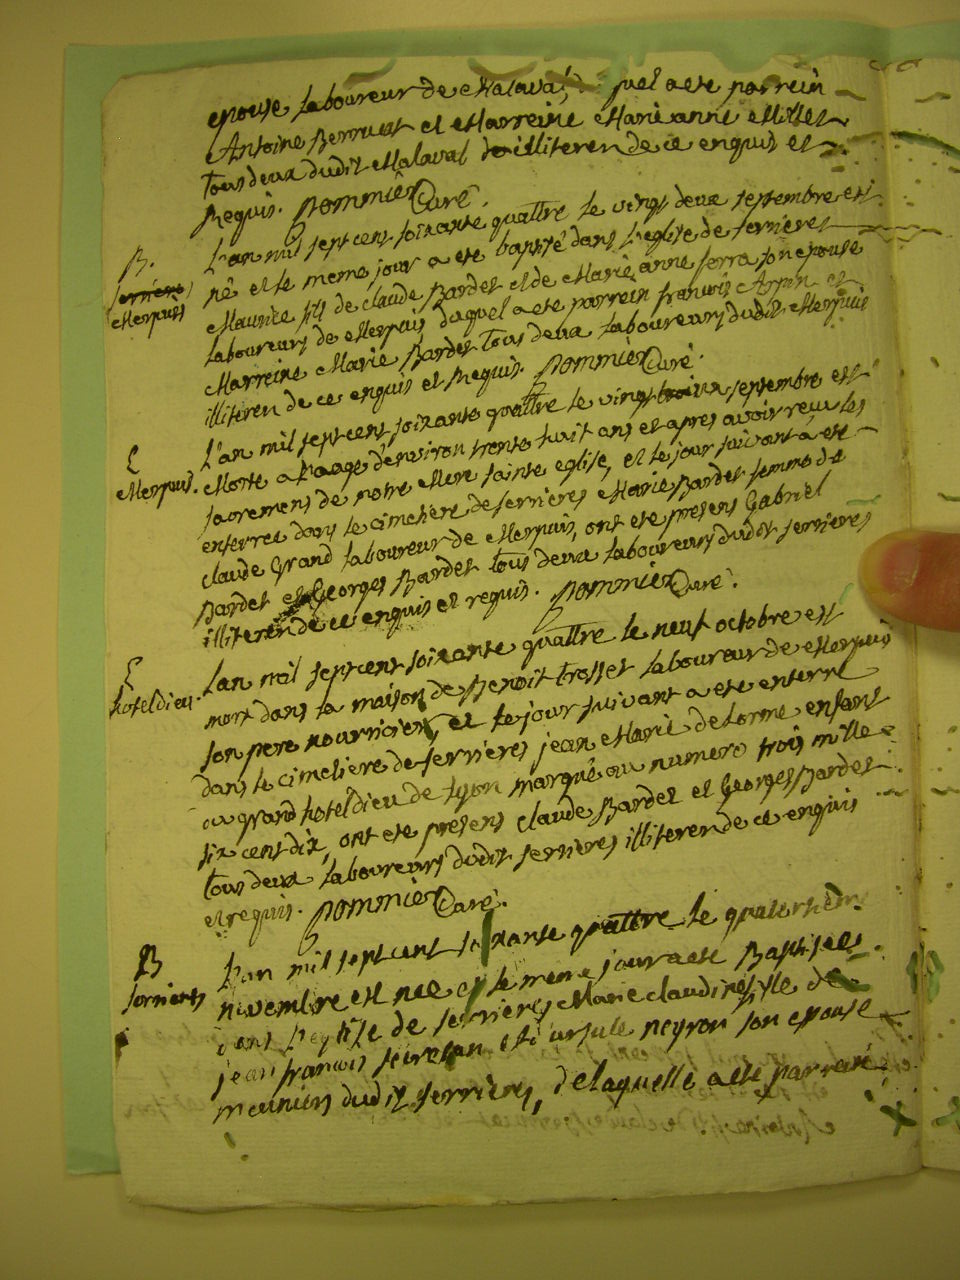 epouse laboureur de Malaval, quel a ete parrein
Antoine Berruat et Marreine Marie anne Millet
tous deux dudit Malaval illiteren de ce enquis et
Requis. pommier Curé.
B.
ferrieres
Merpuis
L'an mil sept cent soixante quattre le vingt deux septembre est
né et le meme jour a ete baptisé dans l'eglise de ferrieres
Maurice fils de claude Bardet et de Marie anne ferra son epouse
laboureurs de Merpuis duquel a ete parrein francois et
Marreine Marie Bardet tous deux laboureurs dudit Merpuis
illiteren de ce enquis et Requis. pommier Curé.
E
Merpuis.
L'an mil sept cent soixante quattre le vingt septembre est
Morte a l'aage d'environ trente huit ans et apres avoir reçu les
sacremens de notre Mere sainte eglise, et le jour suivant a ete
enterree dans le cimetiere de ferrieres Marie Bardet femme de
claude Grand laboureur de Merpuis, ont ete presens Gabriel
Bardet et Georges Bardet tous deux laboureurs dudit ferrieres
illiteren de ce enquis et requis. pommier Curé.
E
hoteldieu.
L'an mil sept cent soixante quattre le neuf octobre est
mort dans la maison de Benoit trosset laboureur de Merpuis
son pere nourricier, et le jour suivant a ete enterré
dans le cimetiere de ferrieres jean Marie delorme enfant
au grand hoteldieu de lyon marqué au numero trois mille
six cent dix, ont ete presens claude Bardet et Georges Bardet
tous deux laboureurs dudit ferrieres illiteren de ce enquis
et requis. pommier Curé.
B
ferrieres
L'an mil sept cent soixante quattre le quatorsieme
novembre est nee et le meme jour a ete Baptisee
dans l'eglise de ferrieres Marie claudine fille de
jean francois et d'ursule neyron son epouse
meuniers dudit ferrieres, de laquelle a ete parrein